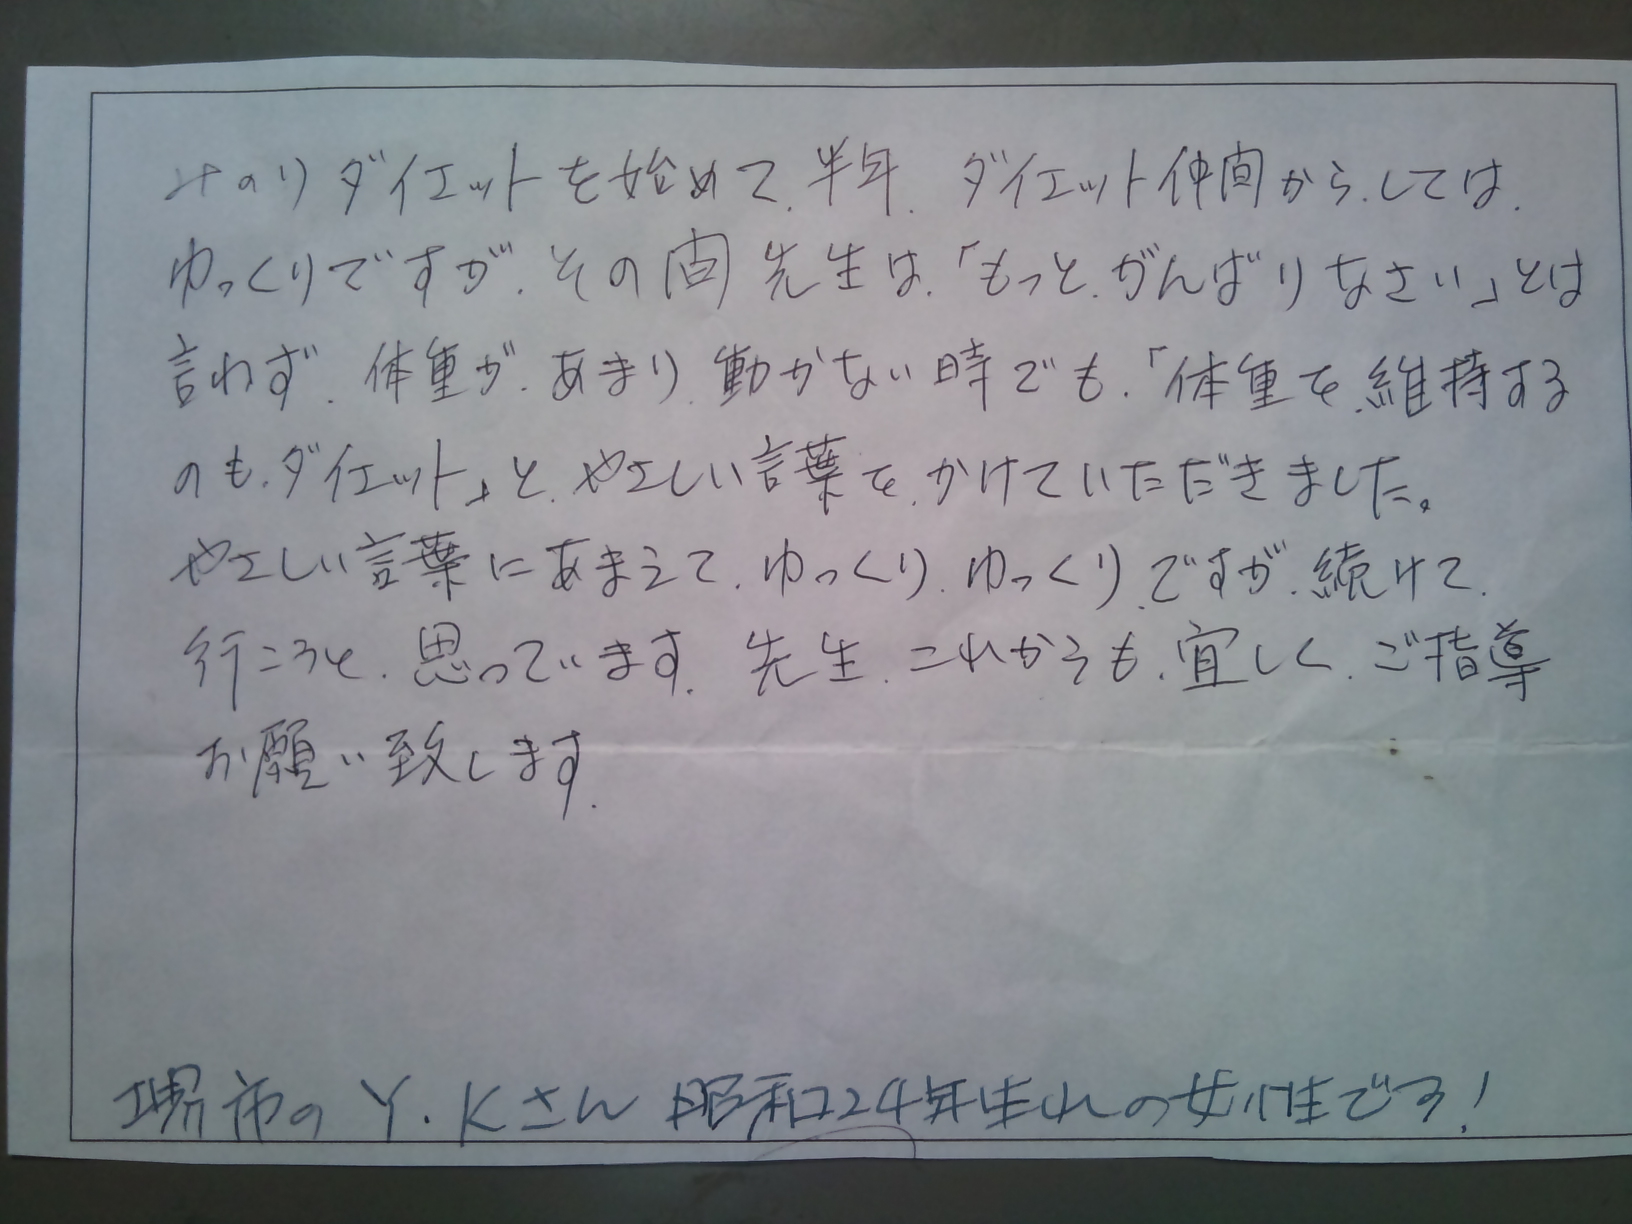 みのりダイエットを始めて、半年、ダイエット仲間から、しては、
ゆっくりですが、その間 先生は、「もっと、がんばりなさい」とは
言わず、体重が、あまり、動かない時でも、「体重を、維持する
のも、ダイエット」と、やさしい言葉を、かけていただきました。
やさしい言葉にあまえて、ゆっくり、ゆっくり、ですが、続けて、
行こうと、思っています。先生、これからも、宜しく、ご指導
お願い致します。
堺市のY.Kさん 昭和24年生れの女性です!